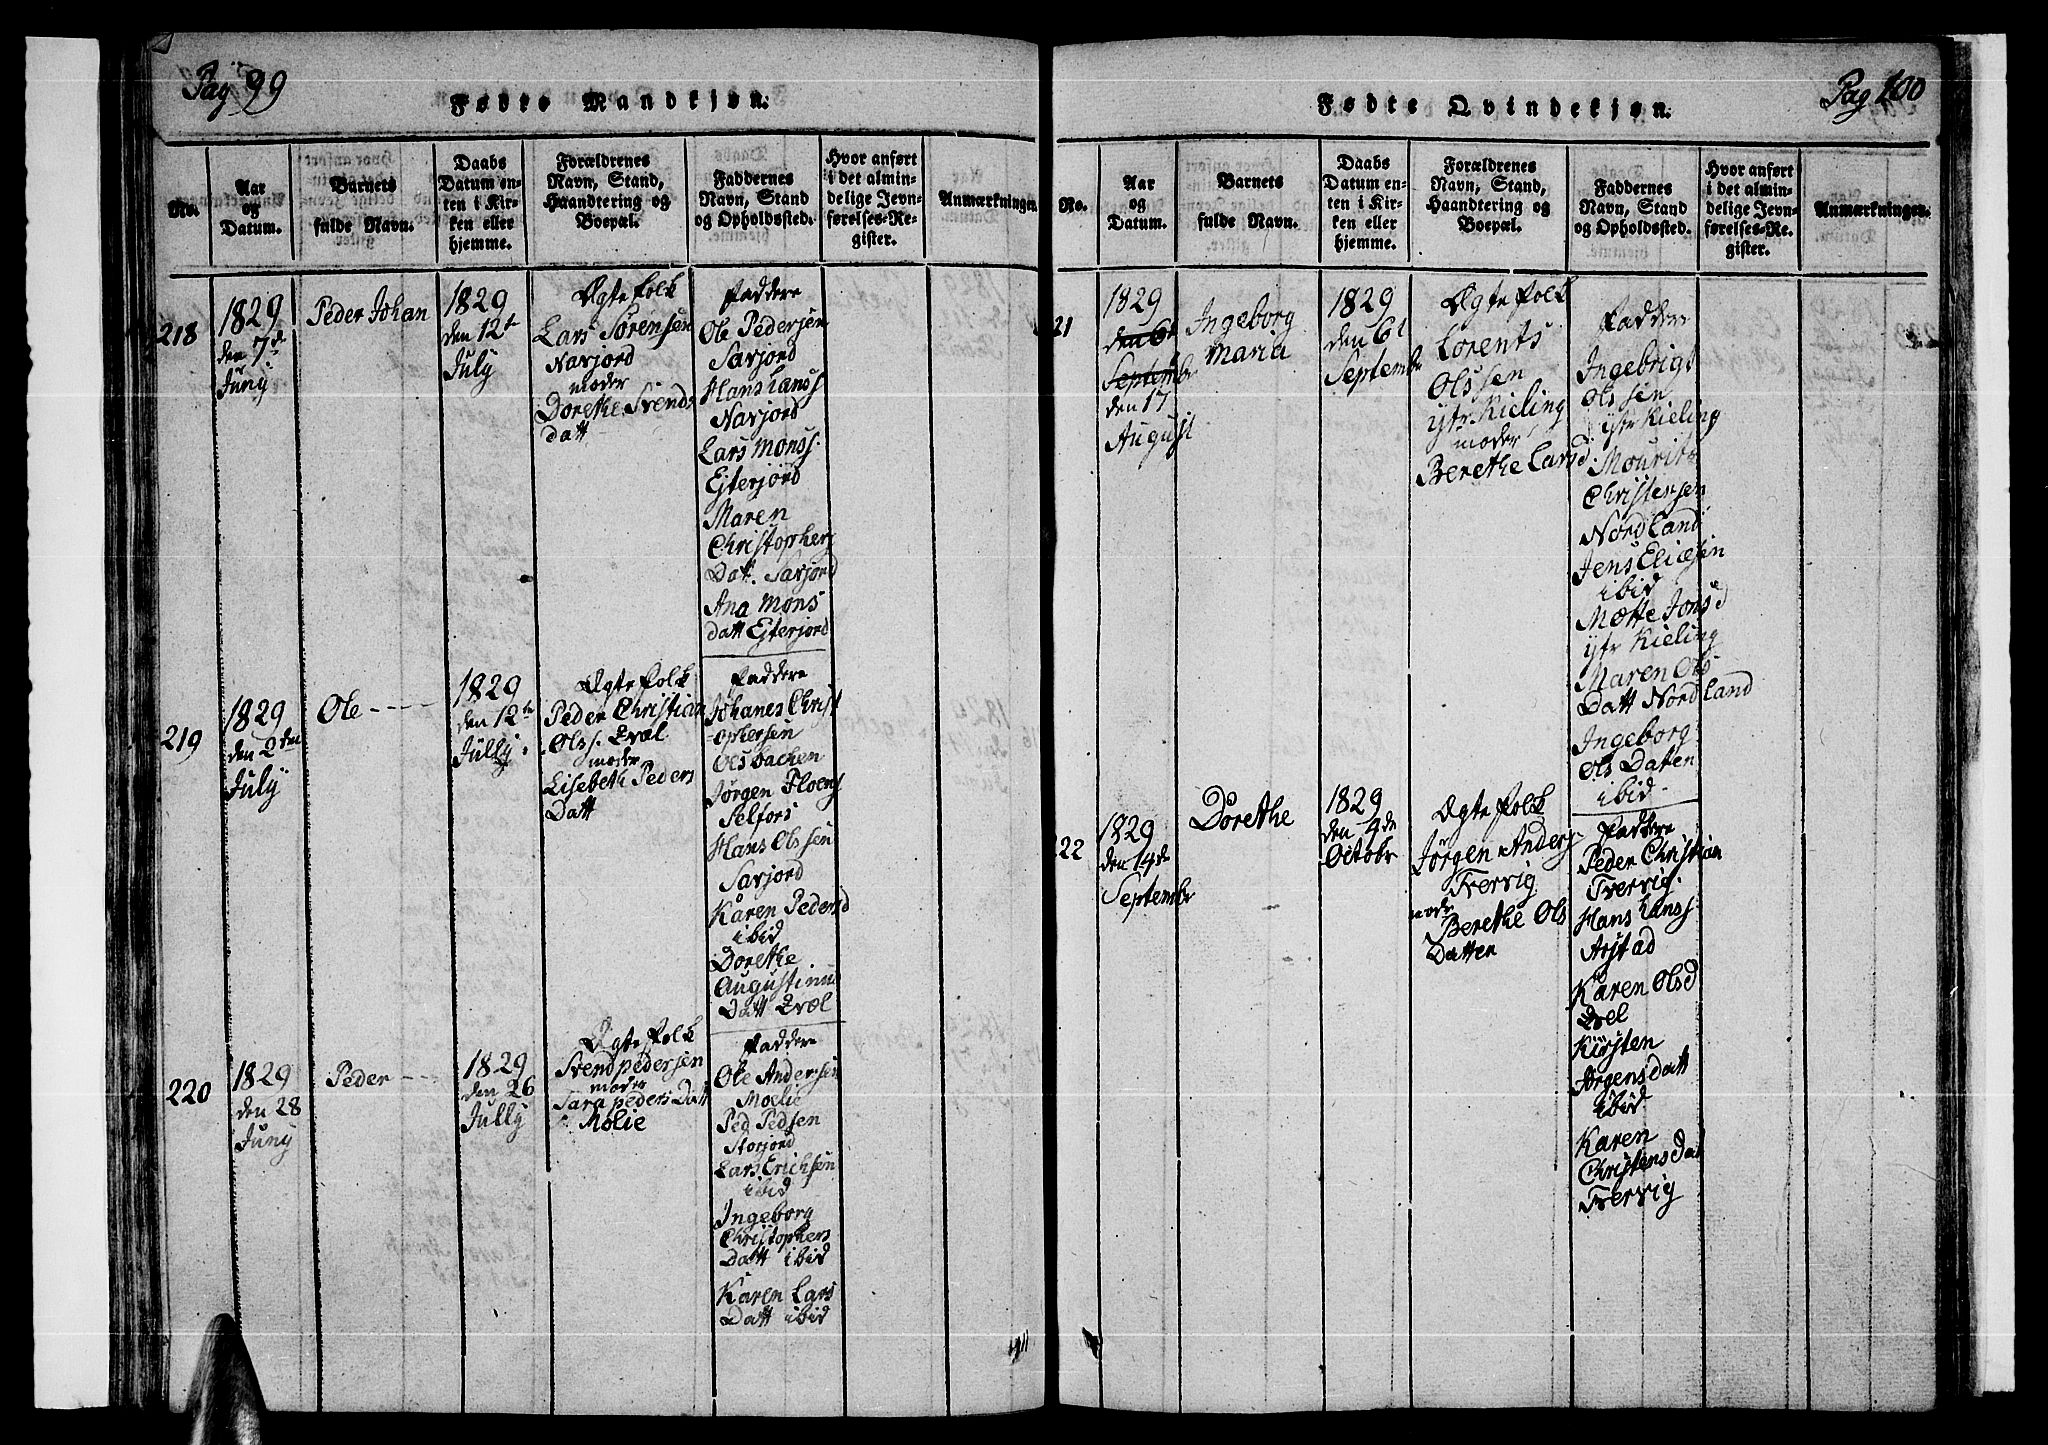 Pag 99
Fødte Mandkjøn.
No.
Aar
og
Datum.
Barnets
fulde Navn.
Daabs
Datum en-
ten i Kir-
ken eller
hjemme.
Forældrenes
Navn, Stand,
Haandtering og
Boepæl.
Faddernes
Navn, Stand
og Opholdssted.
Hvor anført
i det almin-
delige Jevn-
førelses-Re-
gister.
Anmærkninger.
218
1829
den 7de
Juny
Peder Johan
1829
den 12te
July
Ægte folk
Lars Sørensen
Navjord
moder
Dorethe Svends
datt
Faddere
Ole Pedersen
Savjord
Hans Larss
Navjord
Lars Monss.
Ejterjord
Maren
Christophers
Datt. Savjord
Ana Mons
datt Ejterjord
219
1829
den 2den
July
Ole
1829
den 12te
Jully
Ægte folk
Peder Christian
Olss. Evæl
moder
Lisebeth Peders
Datt
Faddere
Johanes Christ
ophersen
Olsbachen
Jørgen Floens
Selfors
Hans Olssen
Savjord
Karen Pedersd
ibid
Dorethe
Augustinus
Datt Evæl
220
1829
den 28
Juny
Peder
1829
den 26
Jully
Ægte folk
Svend pedersen
moder
Sara peders Datt
Molie
Faddere
Ole Andersen
Moelie
Ped Pedsen
Storjord
Lars Erichsen
ibid
Ingeborg
Christophers
Datt ibid
Karen Lars
Datt ibid
Pag 100
Fødte Qvindekjøn.
No.
Aar
og
Datum.
Barnets
fulde Navn.
Daabs
Datum en-
ten i Kir-
ken eller
hjemme.
Forældrenes
Navn, Stand,
Haandtering og
Boepæl.
Faddernes
Navn, Stand
og Opholdssted.
Hvor anført
i det almin-
delige Jevn-
førelses-Re-
gister.
Anmærkninger.
21
1829
den 6t
Septembr
den 17
August
Ingeborg
Maria
1829
den 6t
Septembr
Ægte folk
Lorents
Olssen
ytr Kieling
moder
Berethe Larsd.
Faddere
Ingebrigt
Olssen
ytr Kieling
Mourits
Christensen
Nordland
Jens Eliæsen
ibid
Mætte Jonsd
ytr Kieling
Maren Ols
Datt Nordland
Ingeborg
Ols Datten
ibid
222
1829
den 14de
Septembr
Dorethe
1829
den 4de
Octobr
Ægte folk
Jørgen Anders
Tvervig
mode
Berethe Ols
Datten
Faddere
Peder Christian
Tvervig
Hans Hanss
Arstad
Karen Olsd
Evel
Kirsten
Jørgensdatt
ibid
Karen
Christens Dat
Tvervig